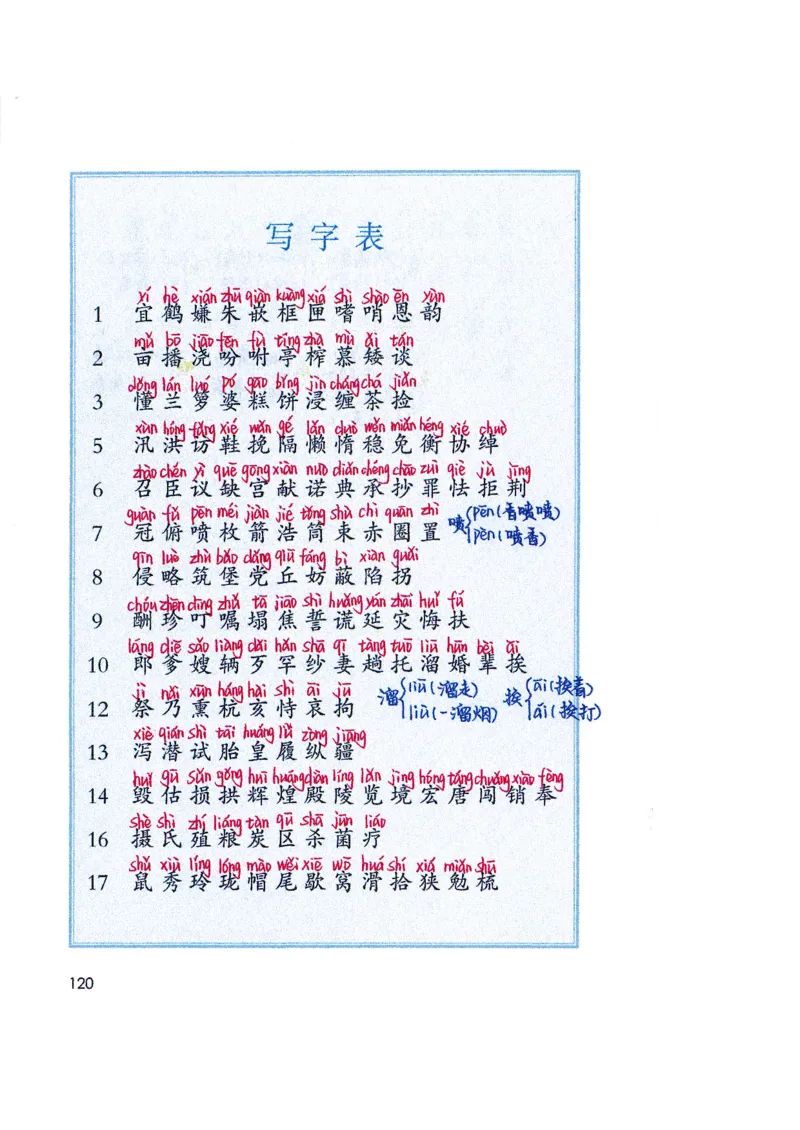 写字表
yí hè xián zhū qiàn kuàng xiá shì shào ēn yùn
1 宜鹤嫌朱嵌框匣嗜哨恩韵
mǔ bō jiāo fēn fù tíng zhà mù ǎi tán
2 亩播浇吩咐亭榨慕矮谈
dǒng lán luó pó gāo bǐng jìn cháng chá jiǎn
3 懂兰箩婆糕饼浸缠茶捡
xùn hóng fǎng xié wǎn gé lǎn duò wěn miǎn héng xié chuò
5 汛洪访鞋挽隔懒惰稳免衡协绰
zhào chén yì quē gōng xiàn nuò diǎn chéng chāo zuì qiè jù jīng
6 召臣议缺宫献诺典承抄罪怯拒荆
guàn fǔ pēn méi jiàn jié tǒng shù chì quān zhì
7 冠俯喷枚箭浩筒束赤圈置 喷 pēn(香喷喷)
pèn(喷香)
qīn luè zhù bǎo dǎng qiū fáng bì xiàn guǎi
8 侵略筑堡党丘妨蔽陷拐
chóu zhēn dīng zhǔ tā jiāo shì huǎng yán zāi huǐ fú
9 酬珍叮嘱塌焦誓谎延灾悔扶
láng diē sǎo liàng dǎi hǎn shā qī tàng tuō liū hūn bèi āi
10 郎爹嫂辆歹罕纱妻趟托溜婚辈挨
jì nǎi xūn háng hài shì āi jū 溜 liū(溜走) 挨 āi(挨着)
12 祭乃熏杭亥恃哀拘 liù(一溜烟) ái(挨打)
xiè qián shì tāi huáng lǚ zòng jiāng
13 泻潜试胎皇履纵疆
huǐ gū sǔn gǒng huī huáng diàn líng lǎn jìng hóng táng chuǎng xiāo fèng
14 毁估损拱辉煌殿陵览境宏唐闯销奉
shè shì zhí liáng tàn qū shā jūn liáo
16 摄氏殖粮炭区杀菌疗
shǔ xiù líng lóng mào wěi xiē wō huá shí xiá miǎn shū
17 鼠秀玲珑帽尾歇窝滑拾狭勉梳
120